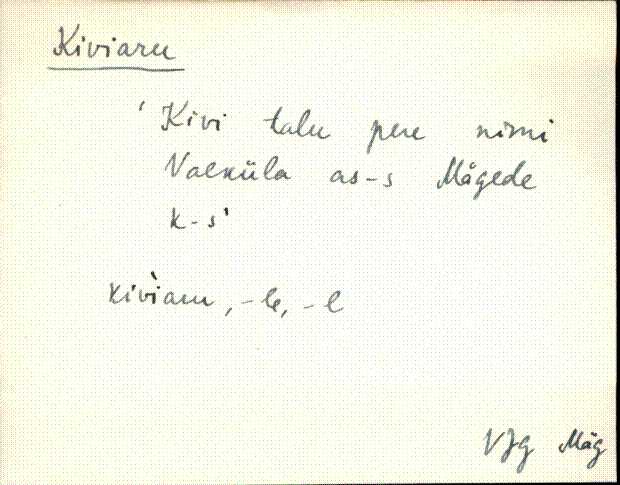 Kiviaru
'Kivi talu pere nimi
Vaeküla as-s Mägede
k-s'
kivìaru, -le, -l
VJg Mäg